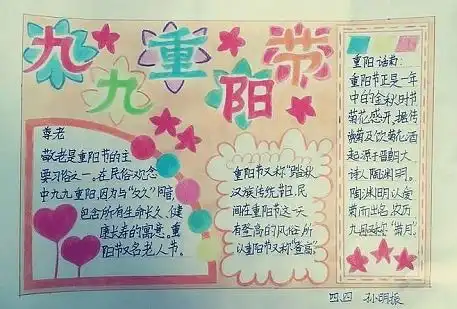 九九重阳节
尊老
敬老是重阳节的主
要习俗之一。在民俗观念
中九九重阳,因为与“久久”同音,
包含所有生命长久、健
康长寿的寓意。重
阳节又名老人节。
重阳节又称“踏秋”
汉族传统节日,民
间在重阳节这一天
有登高的风俗,所
以重阳节又称“登高”。
重阳话菊:
重阳节正是一年
中的金秋时节
菊花盛开,据传
赏菊及饮菊花酒
起源于晋朝大
诗人陶渊明。
陶渊明以爱
菊而出名,农历
九月又称“菊月”。
四.四 孙明振